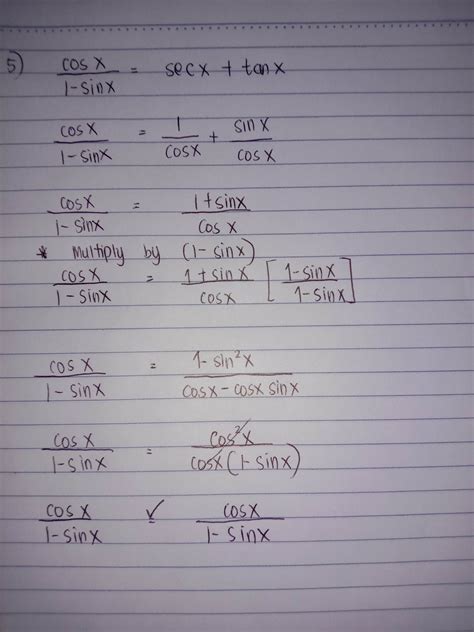 5) cos x / 1-sinx = secx + tanx
cosx / 1-sinx = 1 / cosx + sinx / cosx
cosx / 1-sinx = 1+sinx / cos x
* Multiply by (1-sinx)
cosx / 1-sinx = 1+sinx / cosx [ 1-sinx / 1-sinx ]
cos x / 1-sinx = 1-sin²x / cosx-cosx sinx
cosx / 1-sinx = cos²x / cosx (1-sinx)
cosx / 1-sinx ✓= cosx / 1-sinx